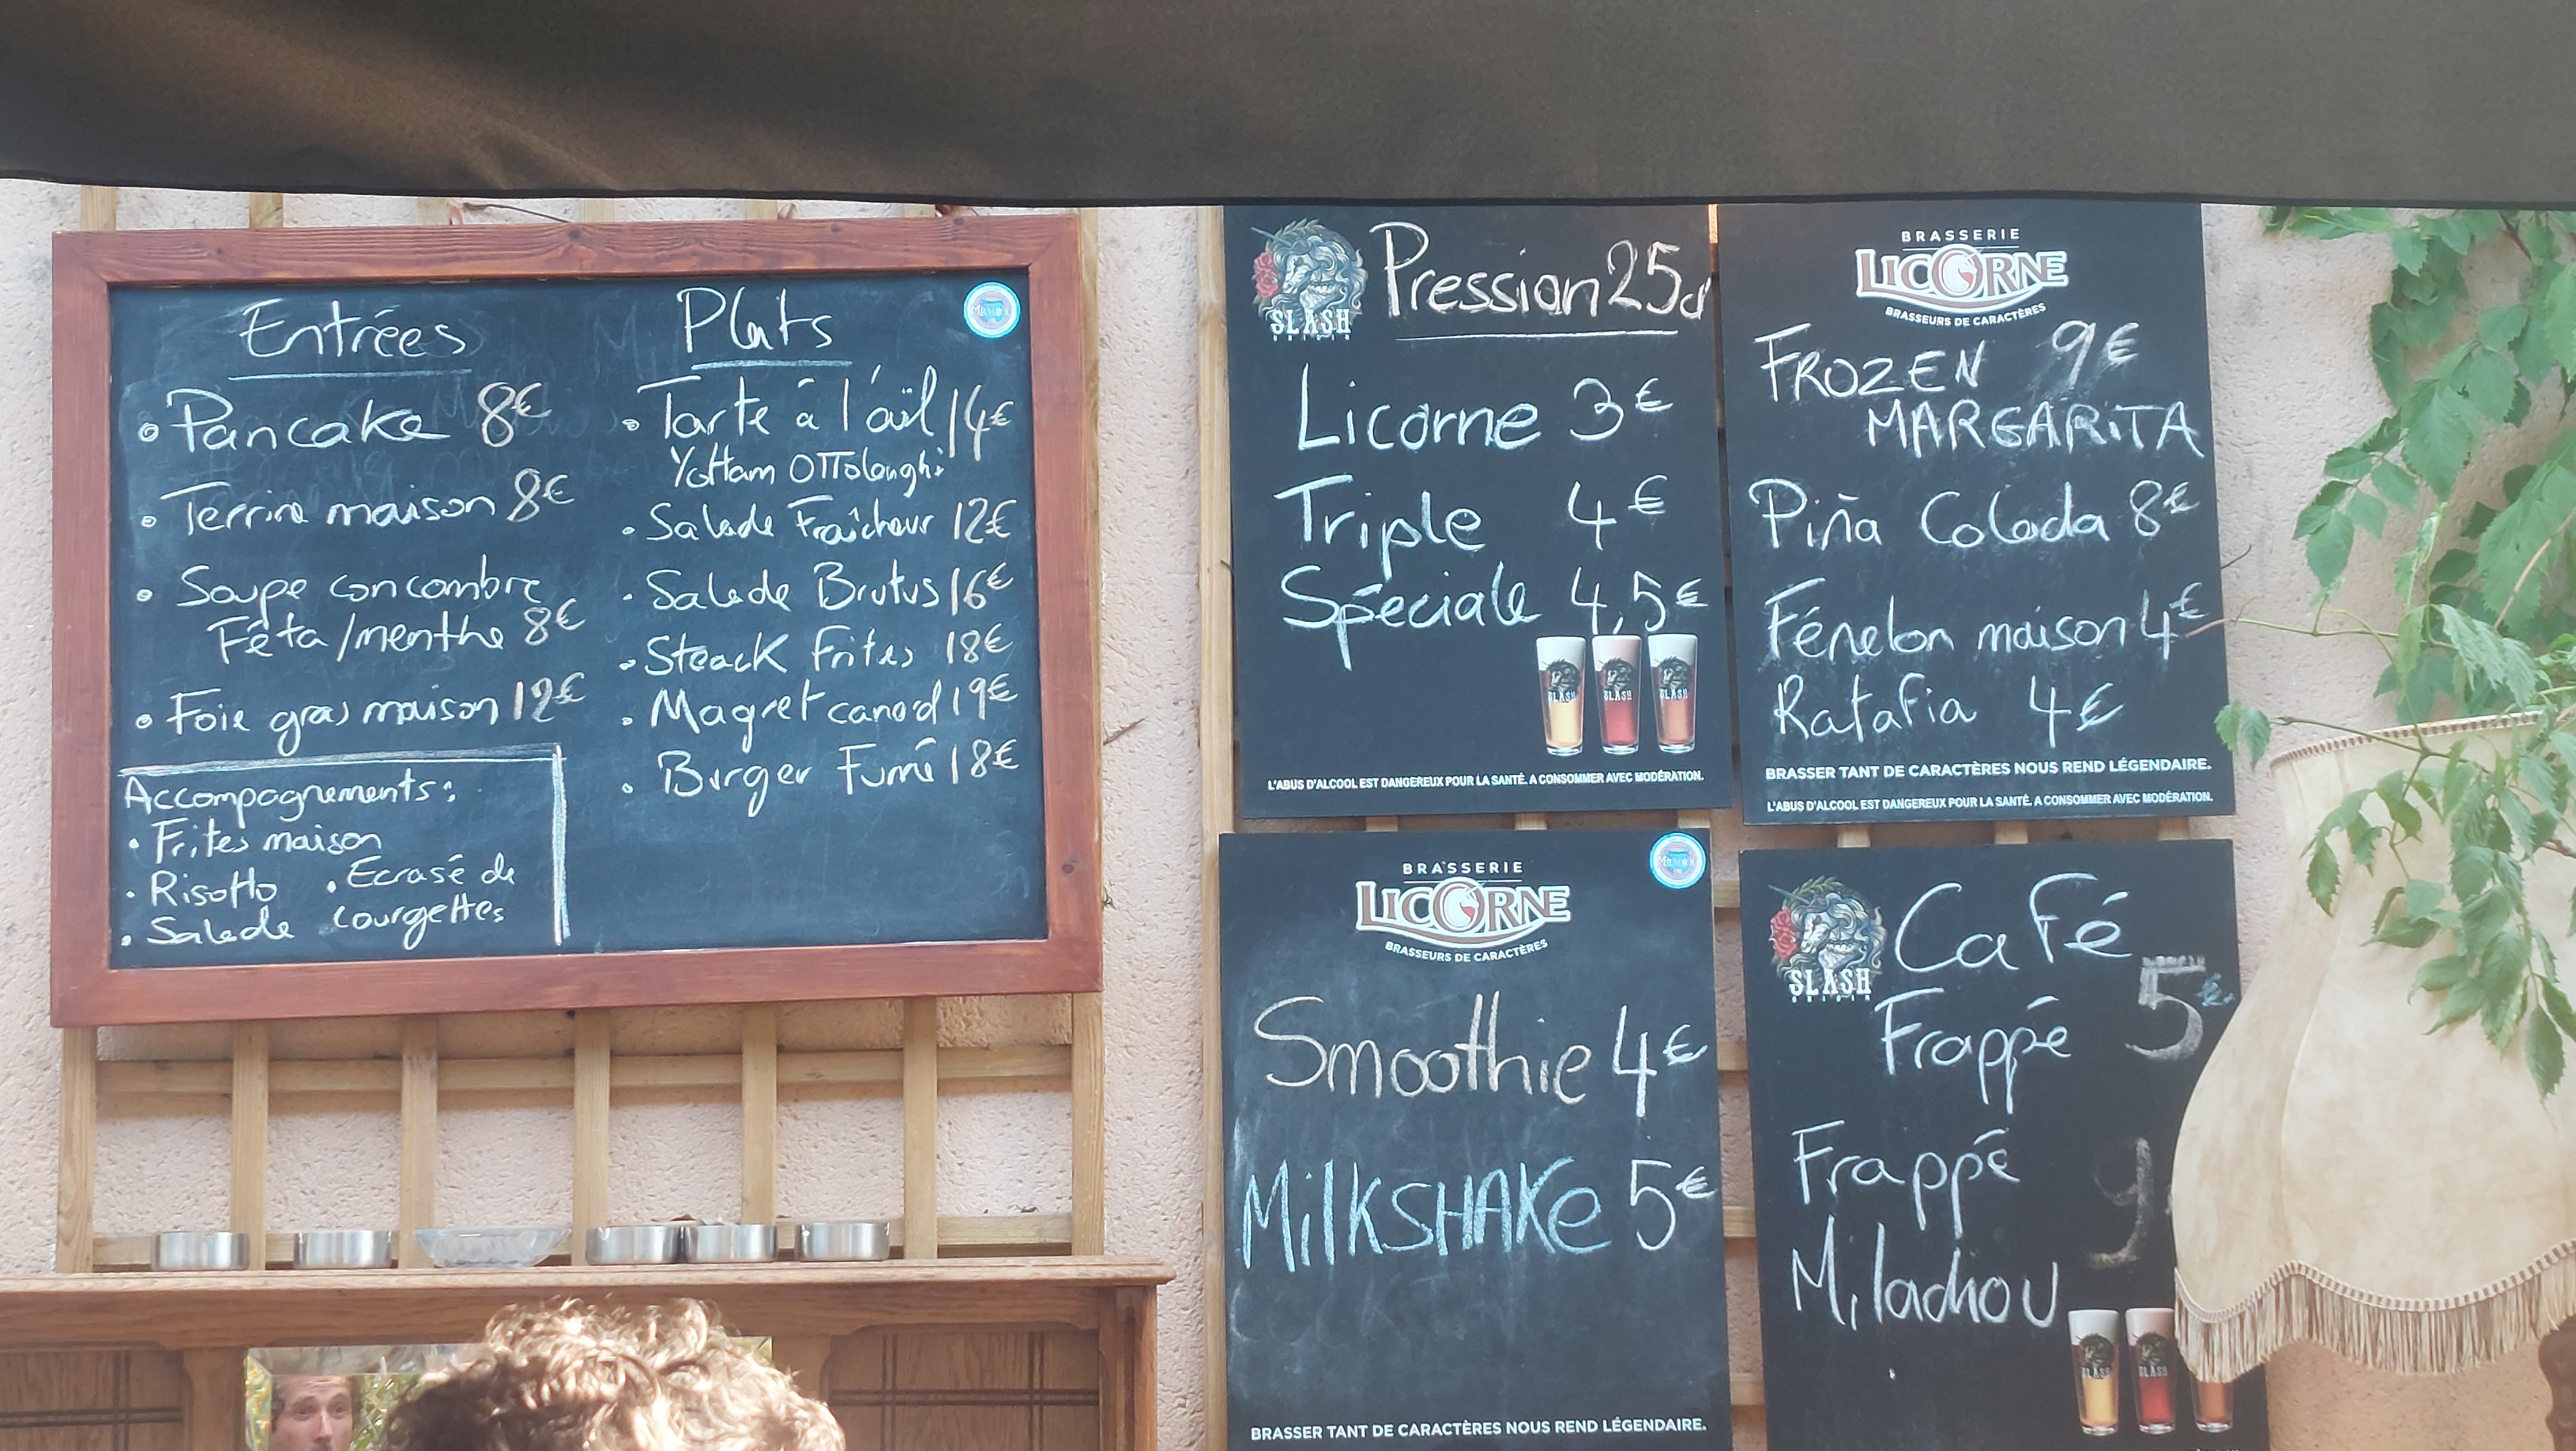 Entrées
• Pancake 8€
• Terrine maison 8€
• Soupe concombre
Fêta/menthe 8€
• Foie gras maison 12€
Accompagnements:
• Frites maison
• Risotto
• Salade
• Ecrasé de
courgettes
Plats
• Tarte à l'ail 14€
Yottam Ottolenghi
• Salade Fraîcheur 12€
• Salade Brutus 16€
• Steack frites 18€
• Magret canard 19€
• Burger Fumé 18€
SLASH
ORIGIN
Pression 25cl
Licorne 3€
Triple 4€
Spéciale 4,5€
SLASH
SLASH
SLASH
L'ABUS D'ALCOOL EST DANGEREUX POUR LA SANTÉ. A CONSOMMER AVEC MODÉRATION.
BRASSERIE
LICORNE
BRASSEURS DE CARACTÈRES
FROZEN 9€
MARGARITA
Piña Colada 8€
Fénelon maison 4€
Ratafia 4€
BRASSER TANT DE CARACTÈRES NOUS REND LÉGENDAIRE.
L'ABUS D'ALCOOL EST DANGEREUX POUR LA SANTÉ. A CONSOMMER AVEC MODÉRATION.
BRASSERIE
LICORNE
BRASSEURS DE CARACTÈRES
Smoothie 4€
MilKSHAKe 5€
BRASSER TANT DE CARACTÈRES NOUS REND LÉGENDAIRE.
SLASH
ORIGIN
Café
Frappé 5€
Frappé
Milachou
SLASH